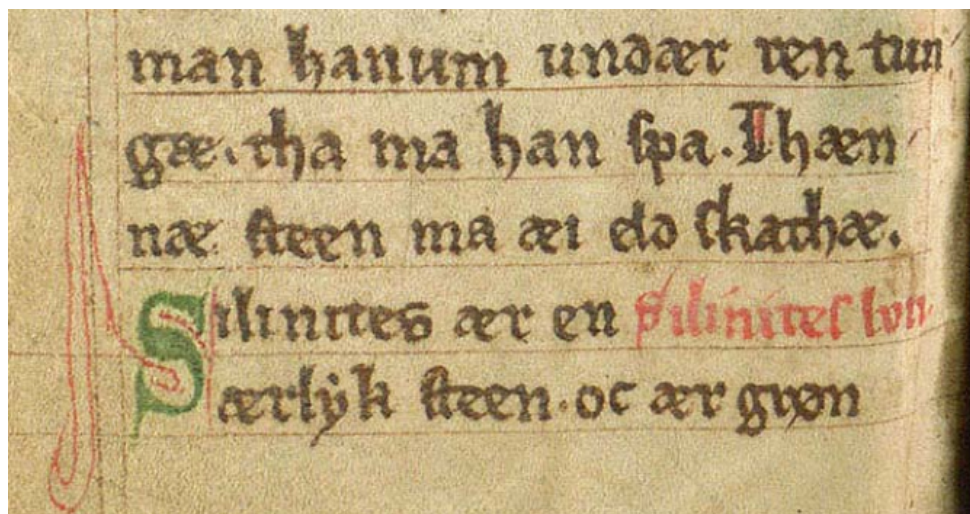 man hanum undær ren tun
gæ. tha ma han spa. Thæn
næ steen ma æi eld skathæ.
Silinites ær en silinites lvn
ærlyk steen. oc ær grøn